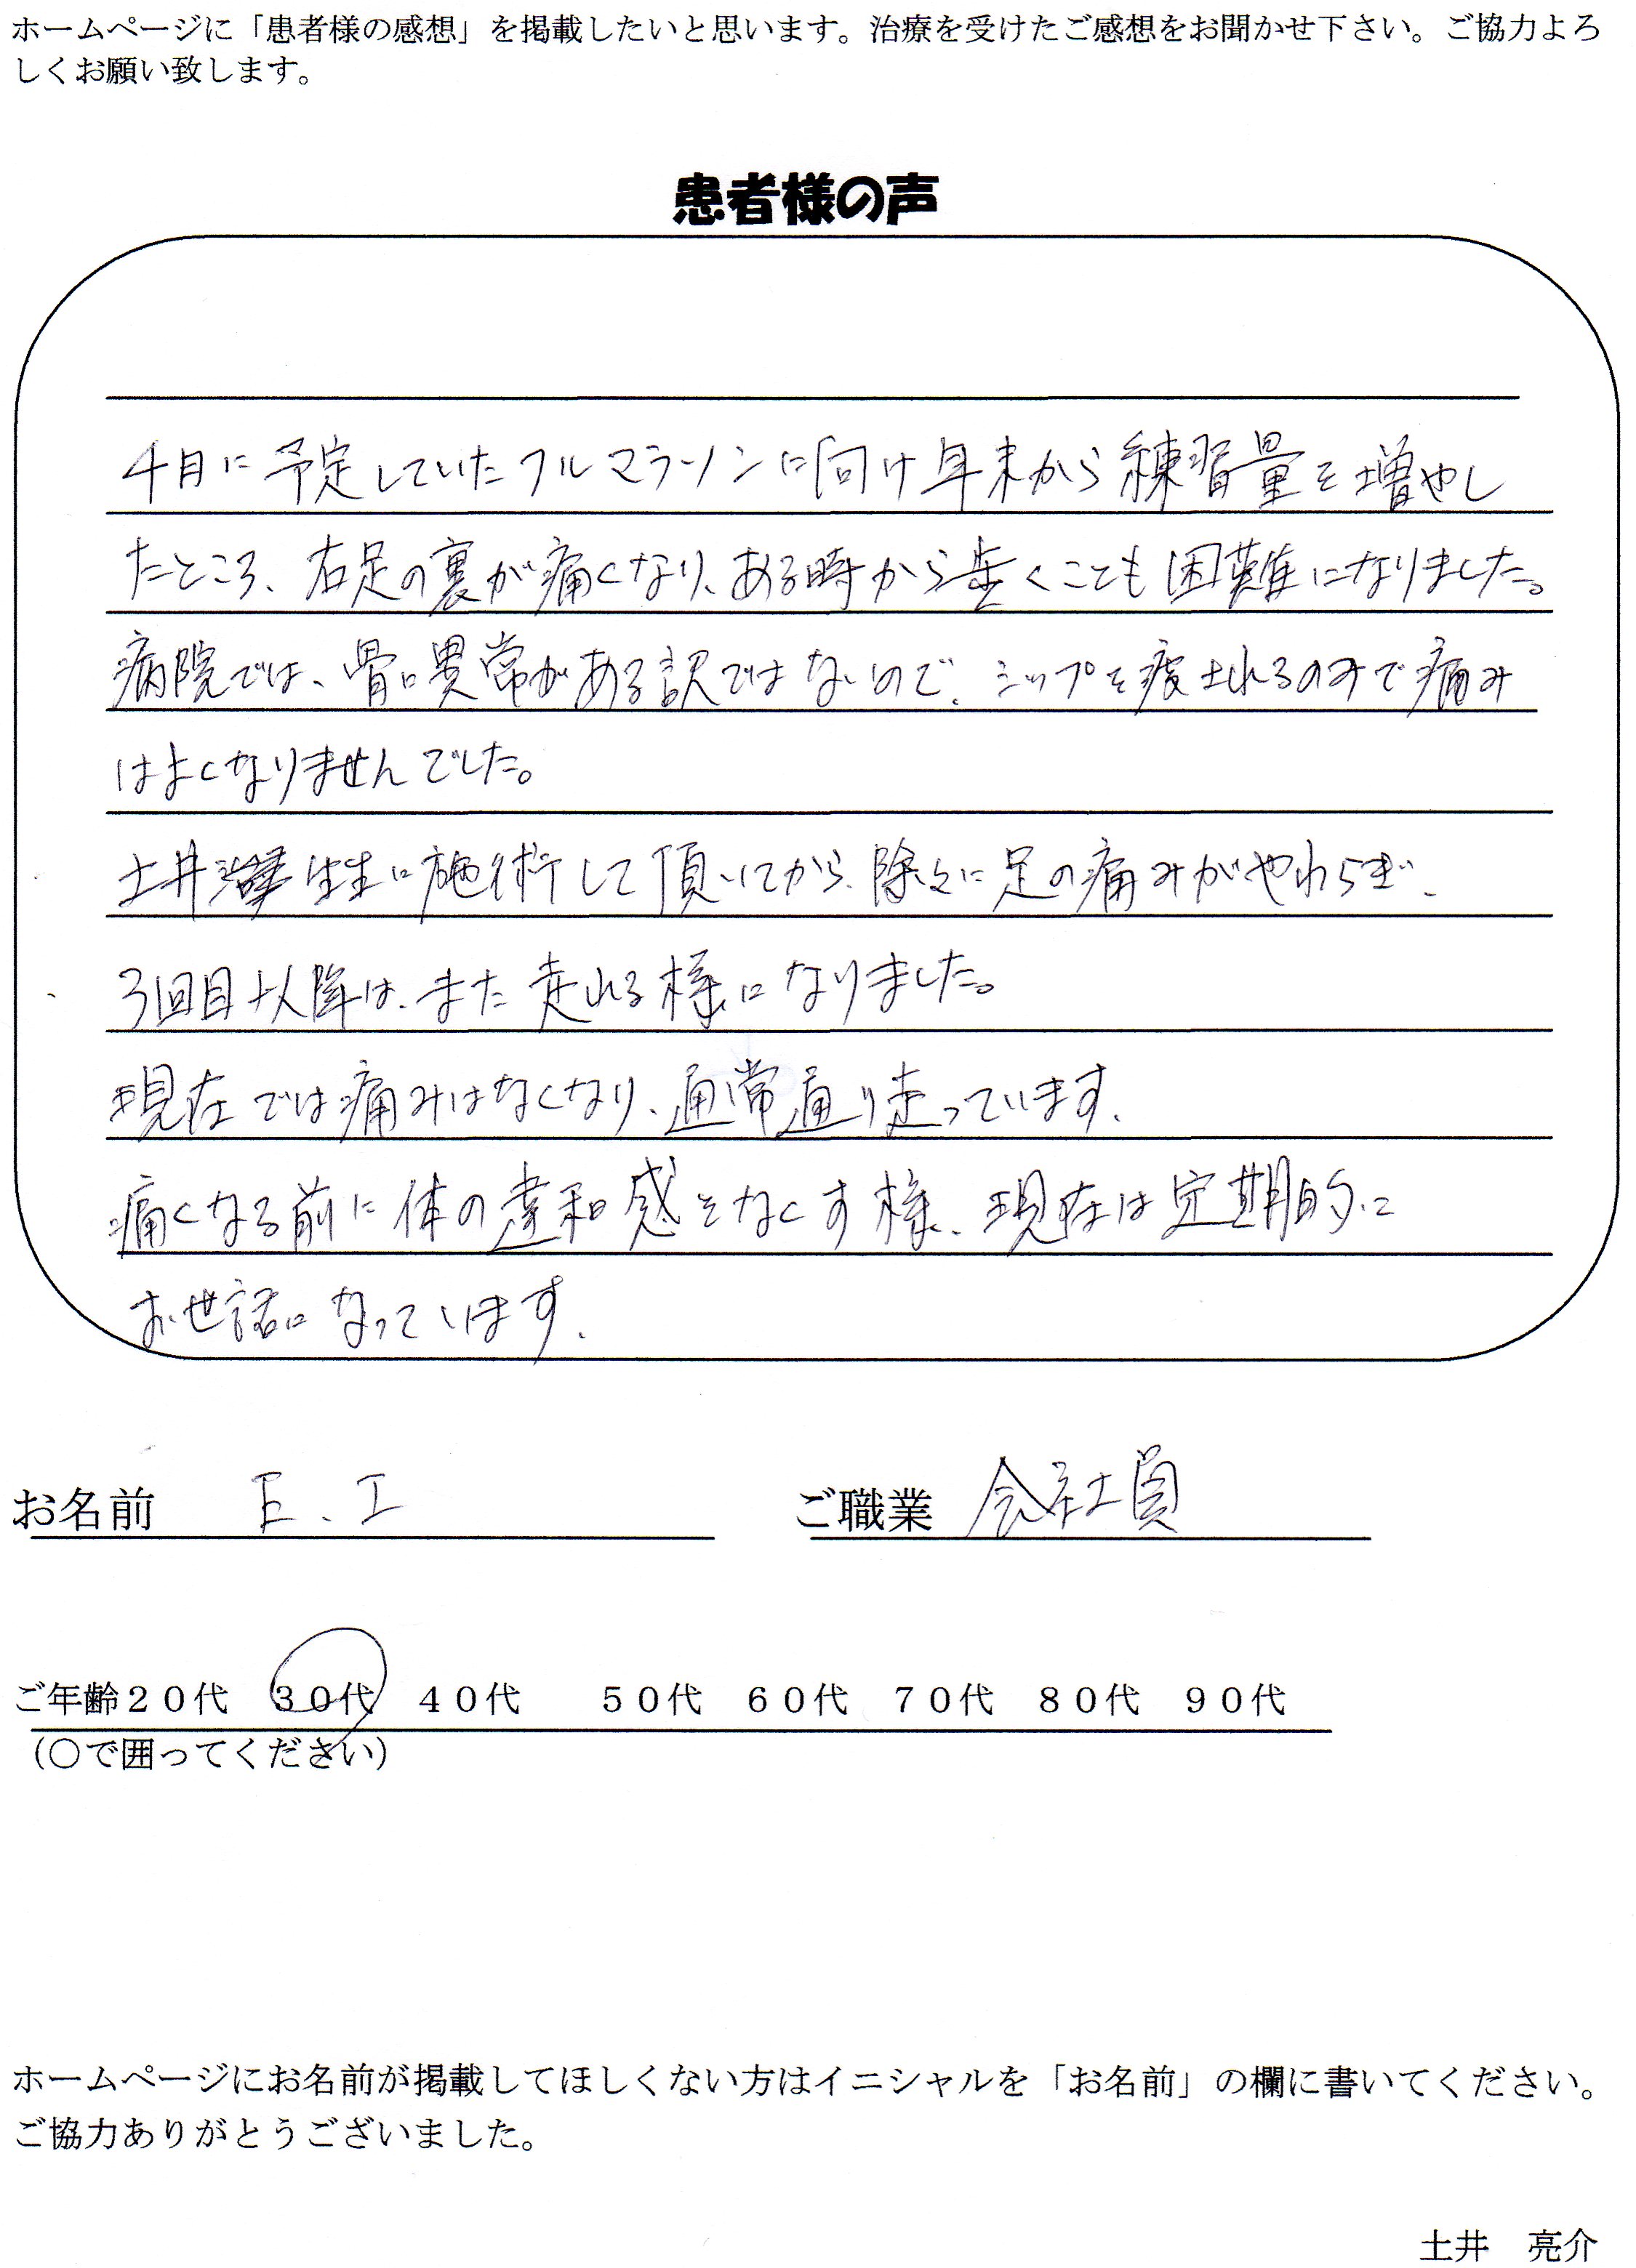 ホームページに「患者様の感想」を掲載したいと思います。治療を受けたご感想をお聞かせ下さい。ご協力よろ
しくお願い致します。
患者様の声
4月に予定していたフルマラソンに向け年末から練習量を増やし
たところ、右足の裏が痛くなり、ある時から歩くことも困難になりました。
病院では、骨に異常がある訳ではないので、シップを渡されるのみで痛み
はよくなりませんでした。
土井先生に施術して頂いてから、除々に足の痛みがやわらぎ、
3回目以降は、また走れる様になりました。
現在では痛みはなくなり、通常通り走っています。
痛くなる前に体の違和感をなくす様、現在は定期的に
お世話になっています。
お名前 E.I ご職業 会社員
ご年齢20代 30代 40代 50代 60代 70代 80代 90代
(○で囲ってください)
ホームページにお名前が掲載してほしくない方はイニシャルを「お名前」の欄に書いてください。
ご協力ありがとうございました。
土井 亮介